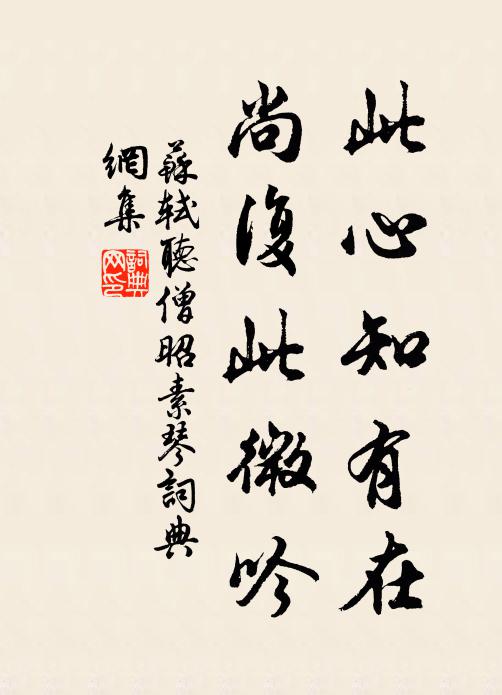 此心知有在
尚復此微吟
蘇軾聽僧昭素琴詞典
網集
詞典
网印